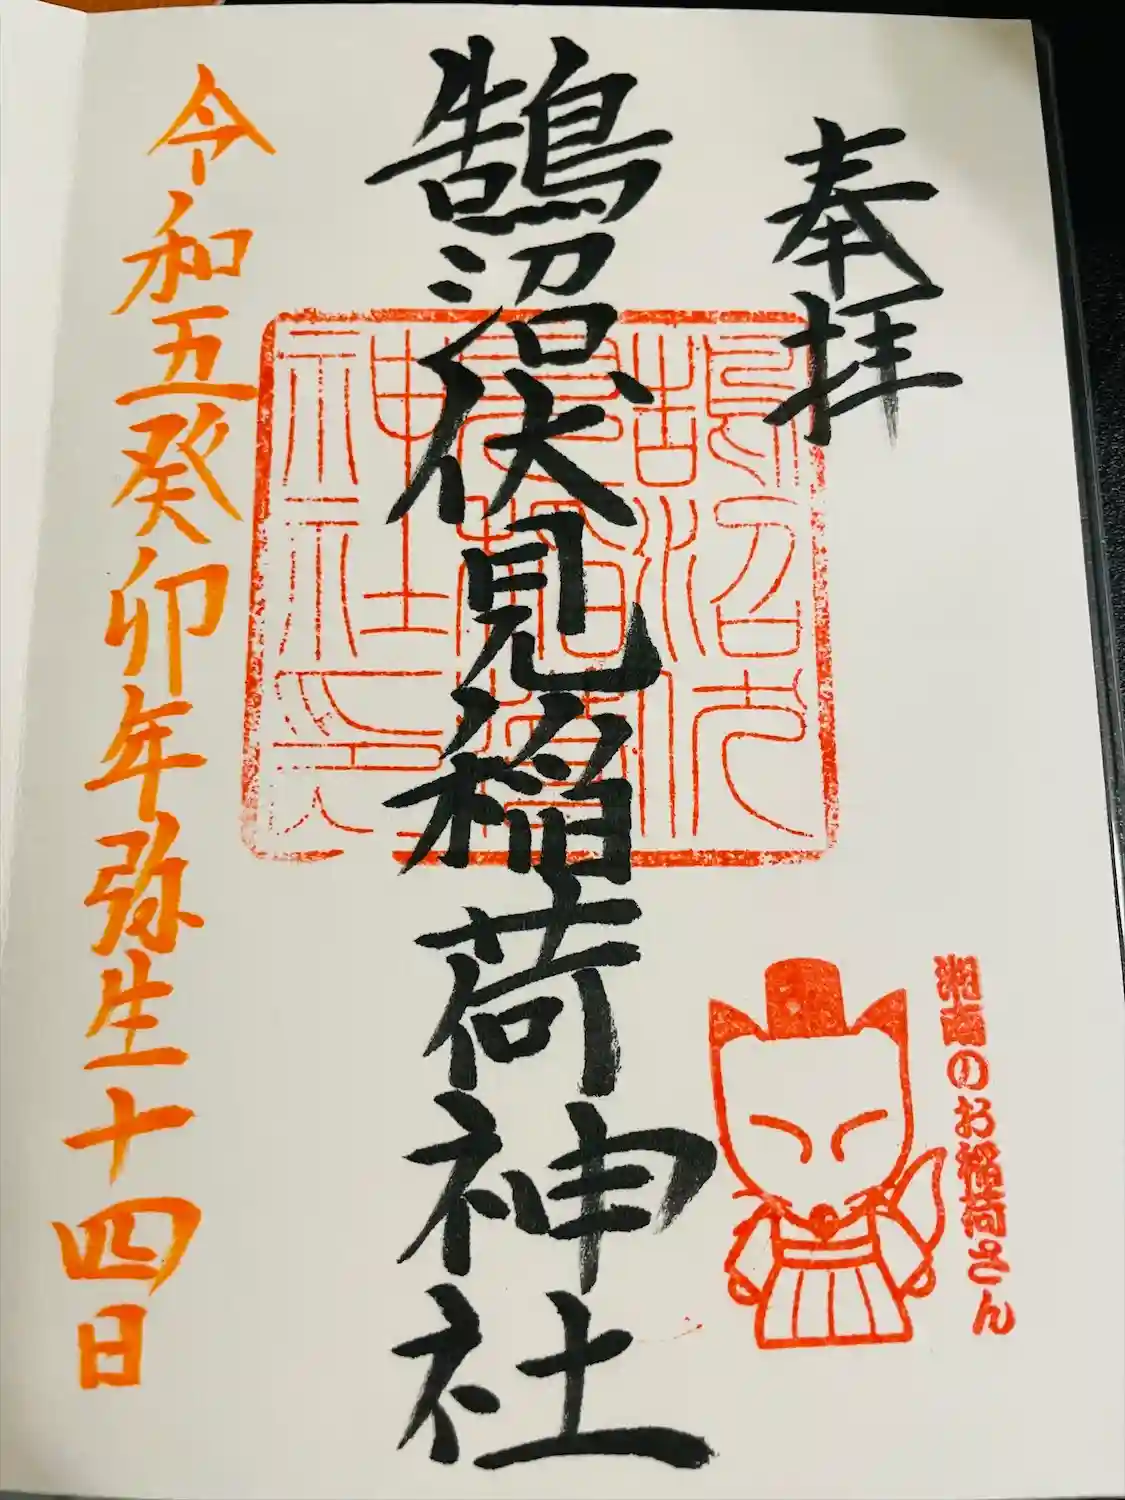 奉拝
鵠沼伏見稲荷神社
鵠沼伏
見稲荷
神社印
湘南のお稲荷さん
令和五癸卯年弥生十四日